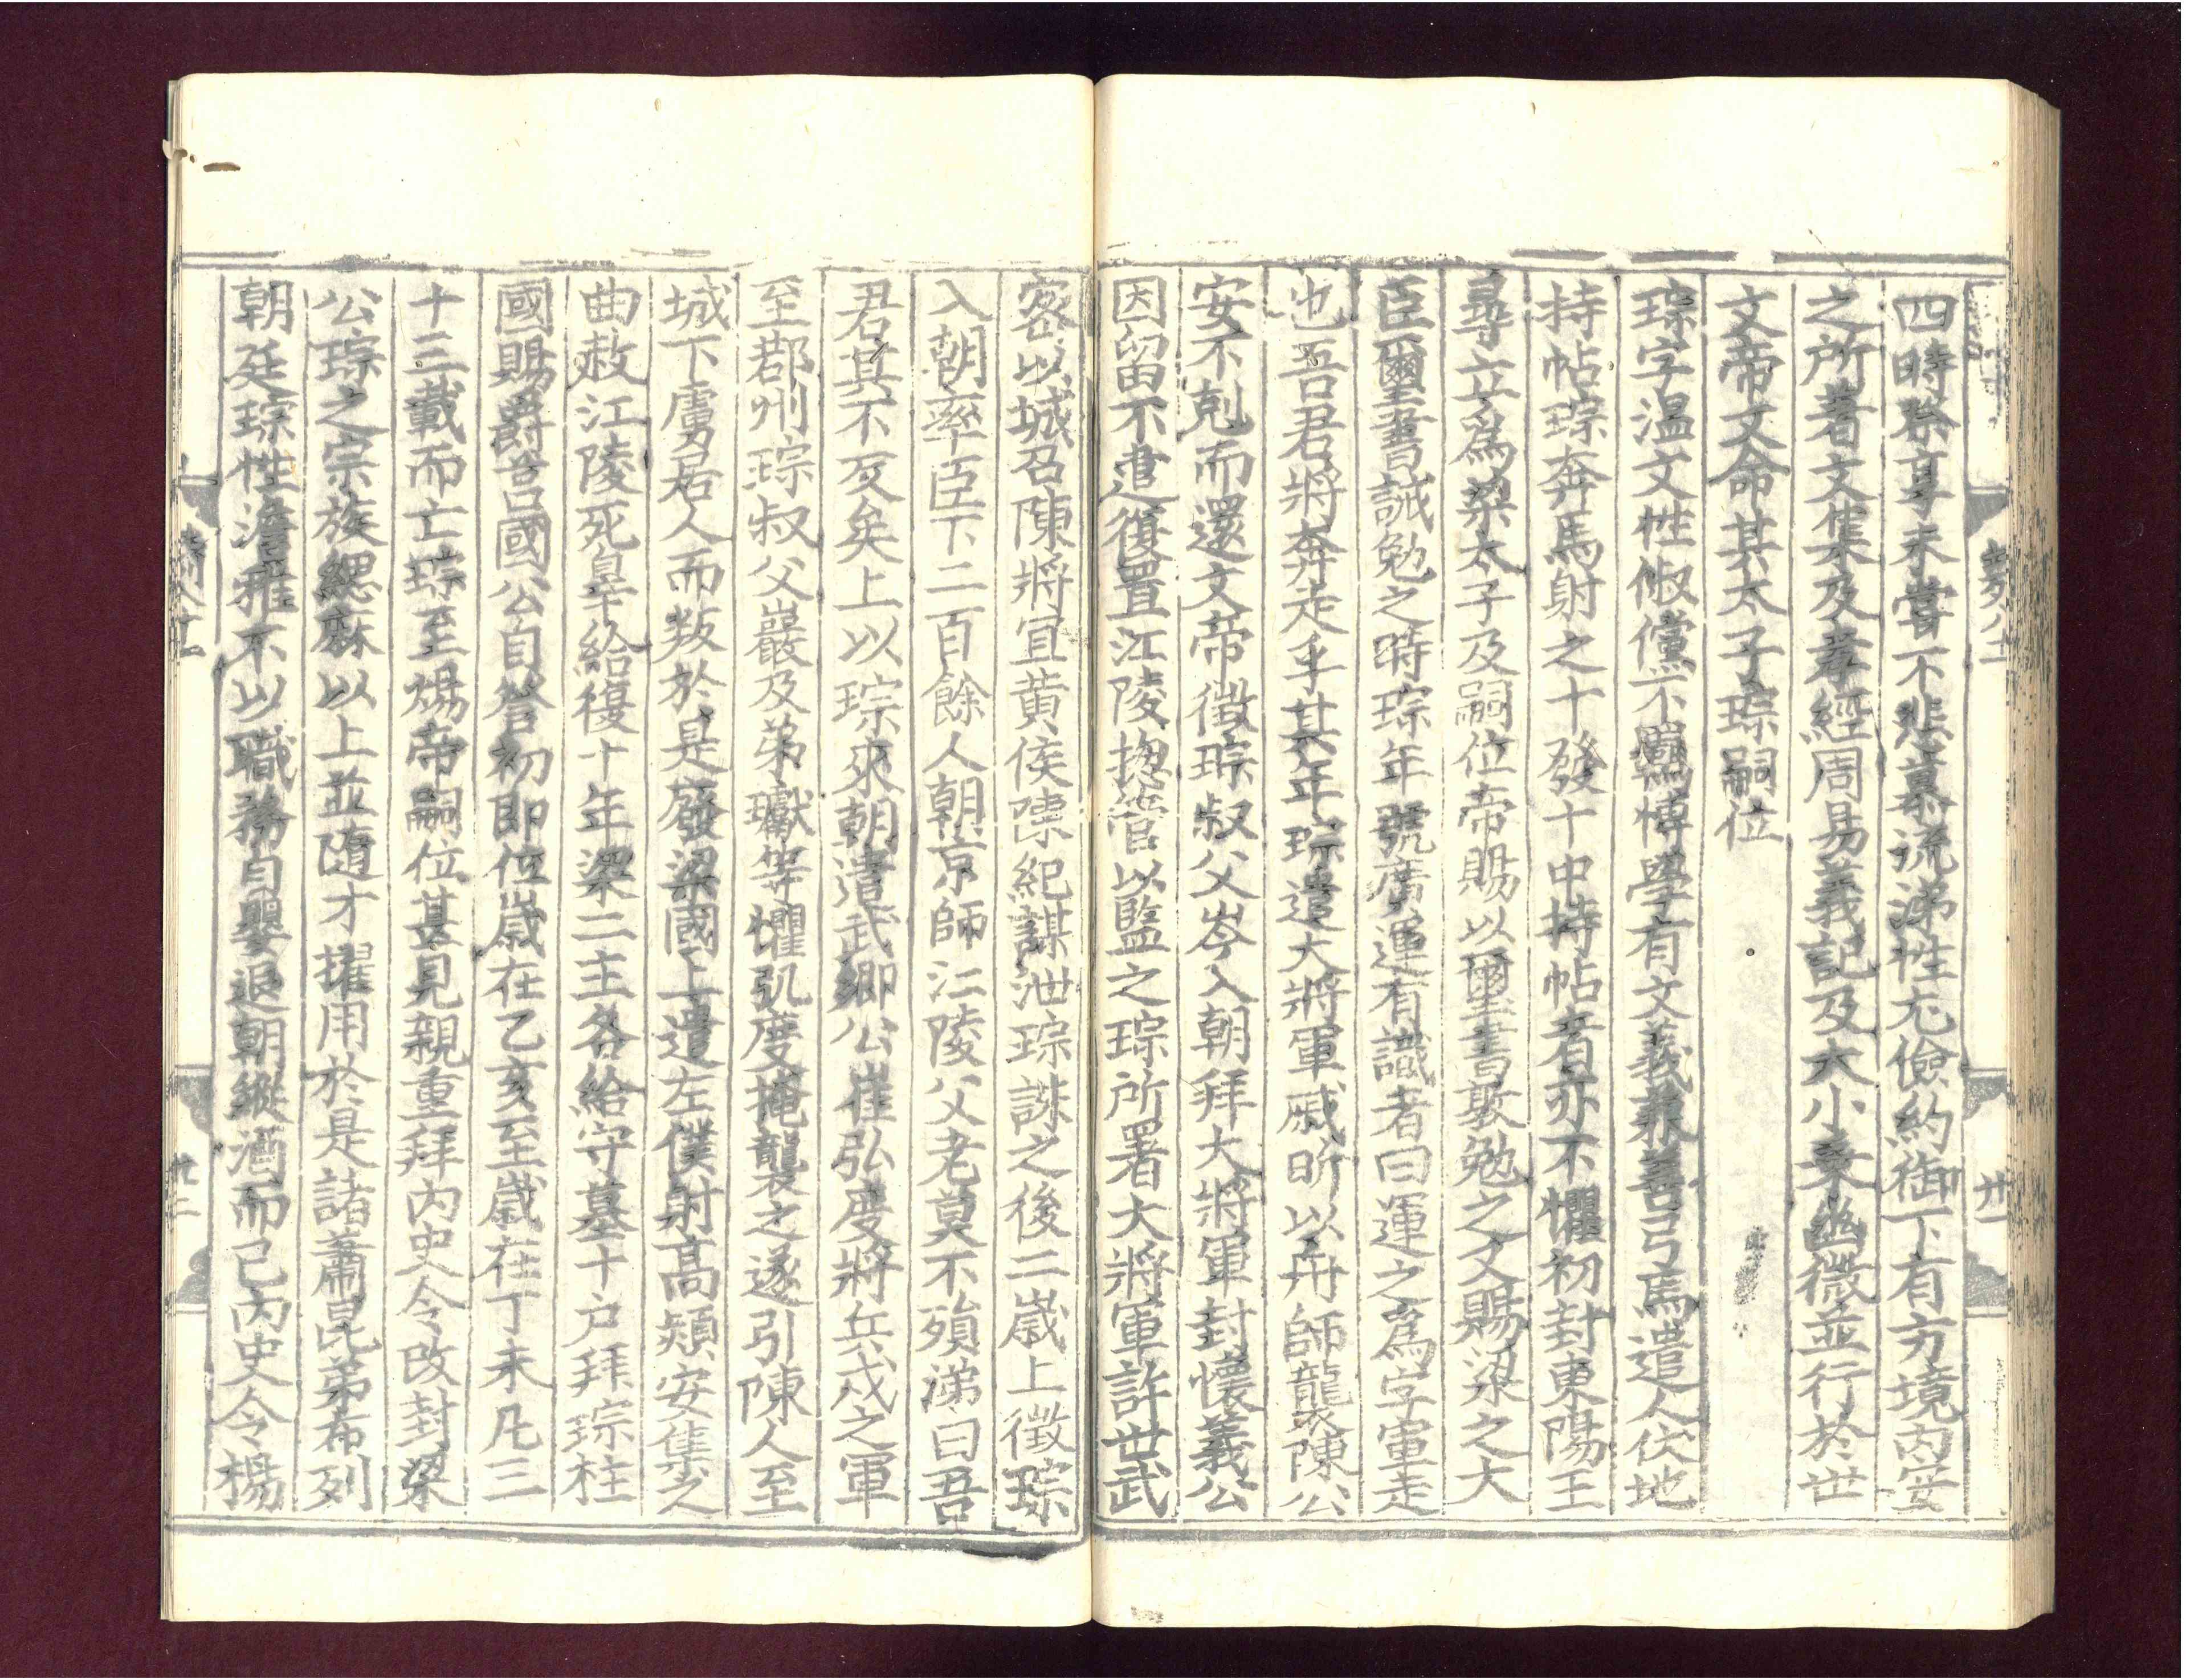 四時祭享未嘗不悲慕流涕性尤儉約御下有方境内安
之所著文集及孝經周易義記及大小乗幽微並行於世
文帝又命其太子琮嗣位
琮字温文性俶儻不羈博學有文義兼善弓馬遣人伏地
持帖琮奔馬射之十發十中持帖者亦不懼初封東陽王
尋立爲梁太子及嗣位帝賜以璽書敦勉之又賜梁之大
臣璽書誡勉之時琮年號廣運有識者曰運之爲字軍走
也吾君將奔走乎其年琮遣大將軍戚昕以舟師襲陳公
安不剋而還文帝徴琮叔父岑入朝拜大將軍封懷義公
因留不遣復置江陵揔管以監之琮所署大將軍許世武
密以城召陳將宜黄侯陳紀謀泄琮誅之後二歲上徴琮
入朝率臣下二百餘人朝京師江陵父老莫不殞涕曰吾
君其不反矣上以琮來朝遣武郷公崔弘度將兵戍之軍
至鄀州琮叔父巖及弟瓛等懼弘度掩襲之遂引陳人至
城下虜居人而叛於是廢梁國上遣左僕射高熲安集之
曲赦江陵死罪給復十年梁二主各給守墓十户拜琮柱
國賜爵莒國公自詧初即位歲在乙亥至歲在丁未凡三
十三載而亡琮至煬帝嗣位甚見親重拜内史令改封梁
公琮之宗族緦麻以上並隨才擢用於是諸蕭昆弟布列
朝廷琮性澹雅不以職務自嬰退朝縱酒而已内史令楊